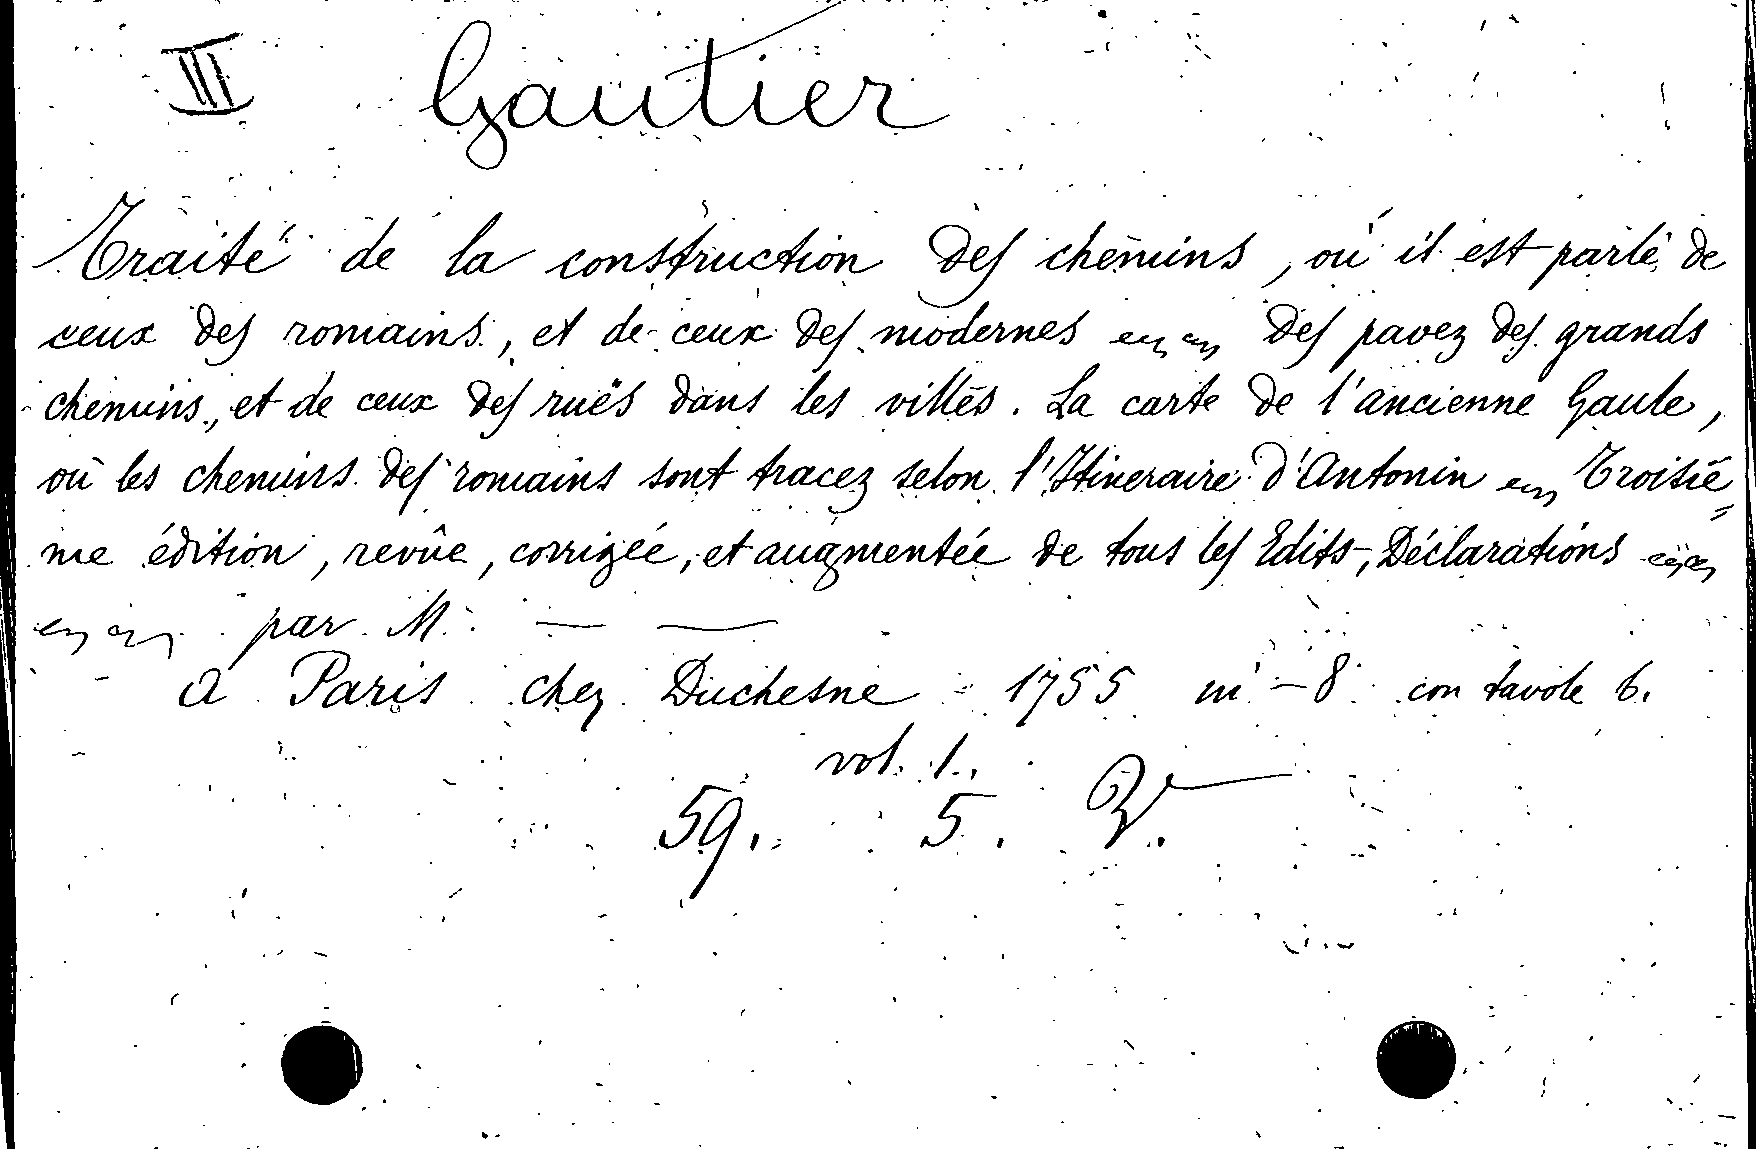 III Gautier
Traité de la construction des chemins, où il est parlé de
ceux des romains, et de ceux des modernes ~ ~ des pavez des grands
chemins, et de ceux des ruës dans les villes. La carte de l'ancienne Gaule,
où les chemins des romains sont tracez selon l'Itineraire d'Antonin ~ Troisiè=
me édition, revûe, corrigée, et augmentée de tous les Edits, Déclarations ~
~ ~ par M. — —
A Paris chez Duchesne 1755 in-8 con tavole 6.
vol. 1.
59. 5.